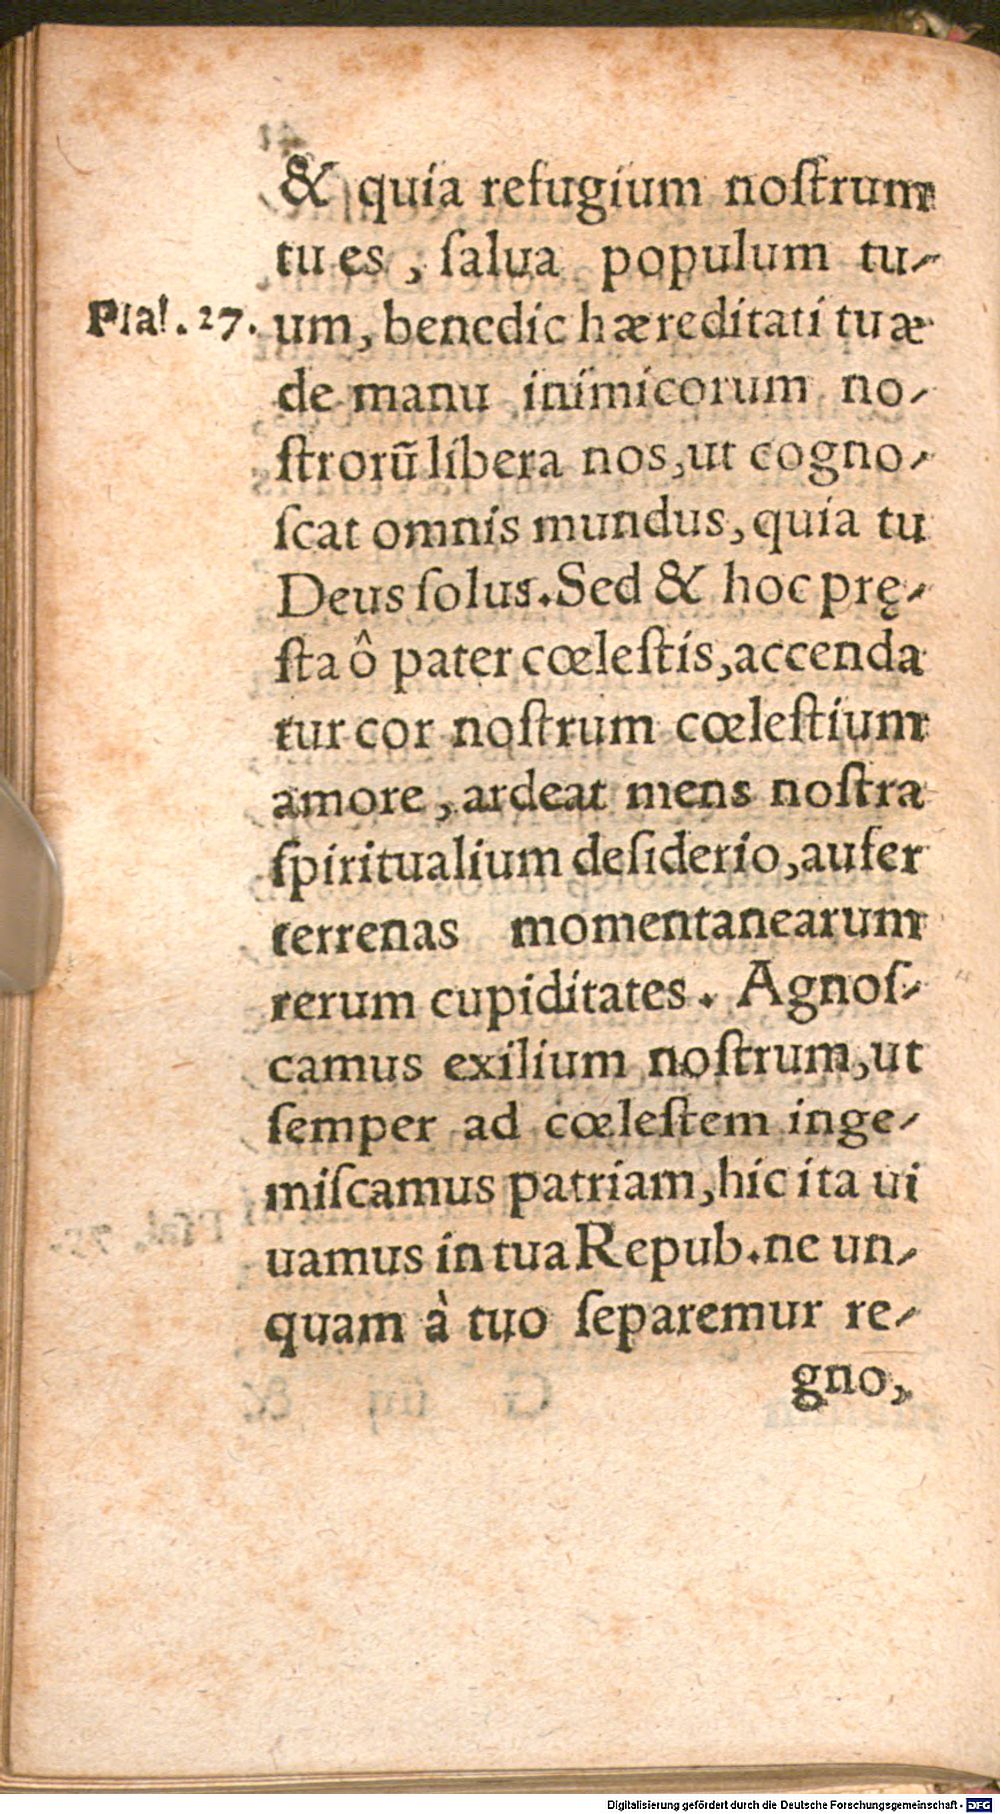 & quia refugium noſtrum
tu es, ſalua populum tu-
Pſal. 27.
um, benedic hæreditati tuæ
de manu inimicorum no-
ſtrorũ libera nos, ut cogno-
ſcat omnis mundus, quia tu
Deus ſolus. Sed & hoc prę-
ſta ô pater cœleſtis, accenda
tur cor noſtrum cœleſtium
amore, ardeat mens noſtra
ſpiritualium deſiderio, aufer
terrenas momentanearum
rerum cupiditates. Agnoſ-
camus exilium noſtrum, ut
ſemper ad cœleſtem inge-
miſcamus patriam, hic ita ui
uamus in tua Repub. ne un-
quam à tuo ſeparemur re-
gno,
Digitalisierung gefördert durch die Deutsche Forschungsgemeinschaft - DFG